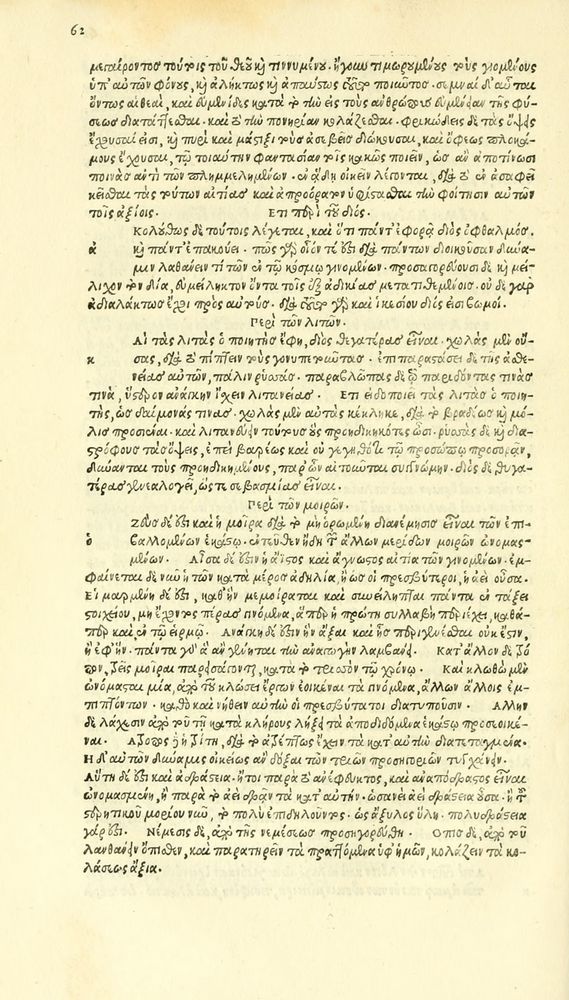 62
μεταίροντος τούτις τοῦ θεοῦ καὶ τιννυμένου. ἤγουν τιμωρουμένους τοὺς γινομένους
ὑπ' αὐτῶν φόνους, καὶ ἀλήκτως καὶ ἀπαύστως τοῦτον ποιοῦντος. σεμναὶ δ' αὗται
ὄντως αἱ θεαὶ, καὶ εὐμενίδες κατὰ τὸ τὴν εἰς τοὺς ἀνθρώπους εὐμένειαν τῆς φύ-
σεως διατάττεσθαι. καὶ τὸ τὴν πονηρίαν κολάζεσθαι. φρικώδεις δὲ τὰς ὄψεις
ἔχουσαί εἰσι, καὶ πυρὶ καὶ μάστιξι τοὺς ἀσεβεῖς διώκουσαι, καὶ ὄφεως πλοκά-
μους ἔχουσαι, τῷ τοιαύτην φαντασίαν τοῖς κακῶς ποιεῖν, ὡς ἂν ἀποτίνωσι
ποινὰς ἀντὶ τῶν πλημμελημάτων. ἐν ᾅδῃ οἰκεῖν λέγονται, διὰ τὸ ἐν ἀσαφεῖ
κεῖσθαι τὰς τούτων αἰτίας καὶ ἀπροόρατον ὑφίστασθαι τὴν φοίτησιν αὐτῶν
τοῖς ἀξίοις. Ἔτι περὶ τοῦ διός.
Κολούθως δὲ τούτοις λέγεται, καὶ ὅτι πάντ' ἐφορᾷ διὸς ὀφθαλμὸς.
ἀ καὶ πάντ' ἐπακούει. πῶς γὰρ οἷόν τέ ἐστι διὰ πάντων διοικοῦσαν δύνα-
μιν λανθάνειν τι τῶν ἐν τῷ κόσμῳ γινομένων. προσαγορεύουσι δὲ καὶ μεί-
λιχον τὸν δία, εὐμείλικτον ὄντα τοῖς ἐξ ἀδικίας μετατιθεμένοις. οὐ δεῖ γὰρ
ἀδιαλάκτως ἔχειν πρὸς αὐτοὺς. διὰ τοῦτο γὰρ καὶ ἱκεσίου διός εἰσι βωμοί.
Περὶ τῶν λιτῶν.
Αἳ τὰς λιτὰς ὁ ποιητὴς ἔφη, διὸς θυγατέρας εἶναι. χωλὰς μὲν οὔ-
κ σας, διὰ τὸ πίπτειν τοὺς γονυπετοῦντας. ἐπὶ παραστάσει δὲ τῆς ἀσθε-
νείας αὐτῶν, πάλιν ῥυσσάς. παραβλῶπας δὲ τῷ παριδόντας τινάς
τινὰ, ὕστερον ἀνάγκην ἔχειν λιτανείας. Ἔτι εἰδοποιεῖ τὰς λιτὰς ὁ ποιη-
τὴς, ὡς δαίμονάς τινας. χωλὰς μὲν αὐτὰς κέκληκε, διὰ τὸ βραδέως καὶ μό-
λις προσιέναι. καὶ λιτανεύειν τούτους οὓς προηδικηκότες ὦσι. ῥυσὰς δὲ καὶ δια-
στρόφους τὰς ὄψεις, ἐπεὶ βαρέως καὶ οὐ γεγηθότι τῷ προσώπῳ προσορᾶν,
δύνανται τοὺς προηδικημένους, παρ' ὧν αἰτοῦνται συγγνώμην. διὸς δὲ θυγα-
τέρας γενεαλογεῖ, ὥς τε σεβασμίας εἶναι.
Περὶ τῶν μοιρῶν.
Ζεὺς δέ ἐστι καὶ ἡ μοῖρα διὰ τὸ μὴ ὁρωμένη διανέμησις εἶναι τῶν ἐπι-
ὁ βαλλομένων ἑκάστῳ. ἐντεῦθεν ἤδη τῶν ἄλλων μερίδων μοιρῶν ὠνομασ-
μένων. Αἶσα δέ ἐστιν ἡ ἄϊστος καὶ ἄγνωστος αἰτία τῶν γινομένων. ἐμ-
φαίνεται δὲ νῦν ἡ τῶν κατὰ μέρος ἀδηλία, ἢ ὡς οἱ πρεσβύτεροι, ἡ ἀεὶ οὖσα.
Εἱμαρμένη δέ ἐστι, καθ' ἣν μεμοίραται καὶ συνείληπται πάντα ἐν τάξει
στοιχείου, μὴ ἔχοντος πέρας γινόμενα, ἅπερ ἡ πρώτη συλλαβὴ περιέχει, καθά-
περ καὶ ἐν τῷ εἱρμῷ. Ἀνάγκη δέ ἐστιν ἣν ἄξαι καὶ ἧς περιγενέσθαι οὐκ ἔστιν,
ἢ ἐφ' ἥν. πάντα γὰρ ἃ ἂν γίνηται τὴν ἀναγωγὴν λαμβάνει. Κατ' ἄλλον δὲ τρό-
πον, τρεῖς μοῖραι παρεισάγονται, κατὰ τὸ τρισσὸν τῷ χρόνῳ. Καὶ κλωθὼ μὲν
ὠνόμασται μία, ἀπὸ τοῦ κλώσει ἐρίων ἐοικέναι τὰ γινόμενα, ἄλλων ἄλλοις ἐμ-
πιπτόντων. καθὸ καὶ νήθειν αὐτὴν οἱ πρεσβύτατοι διατυποῦσιν. Ἄλλην
δὲ λάχεσιν ἀπὸ τοῦ τῇ κατὰ κλήρους λήξει τὰ ἀποδιδόμενα ἑκάστῳ προσεοικέ-
ναι. Ἄτροπος δὲ ἡ τρίτη, διὰ τὸ ἀτρέπτως ἔχειν τὰ κατ' αὐτὴν διατεταγμένα.
Ἡ δ' αὐτῶν δύναμις οἰκείως ἂν δόξαι τῶν τριῶν προσηγοριῶν τυγχάνειν.
Αὕτη δέ ἐστι καὶ ἀδράστεια. ἤτοι παρὰ τὸ ἀνέκφευκτος, καὶ ἀναπόδραστος εἶναι
ὠνομασμένη, ἢ παρὰ τὸ ἀεὶ δρᾶν τὰ κατ' αὐτήν. ὡσανεὶ ἀεὶ δράστεια οὖσα. ἢ τοῦ
στερητικοῦ μορίου νῦν, τὸ πολὺ ἐπιδηλοῦντος. ὡς ἄξυλος ὕλη. πολυδράστεια
γάρ ἐστι. Νέμεσις δὲ, ἀπὸ τῆς νεμέσεως προσηγορεύθη. Ὄπις δὲ, ἀπὸ τοῦ
λανθάνειν ὄπιθεν, καὶ παρατηρεῖν τὰ πραττόμενα ὑφ' ἡμῶν, κολάζειν τὰ κο-
λάσεως ἄξια.